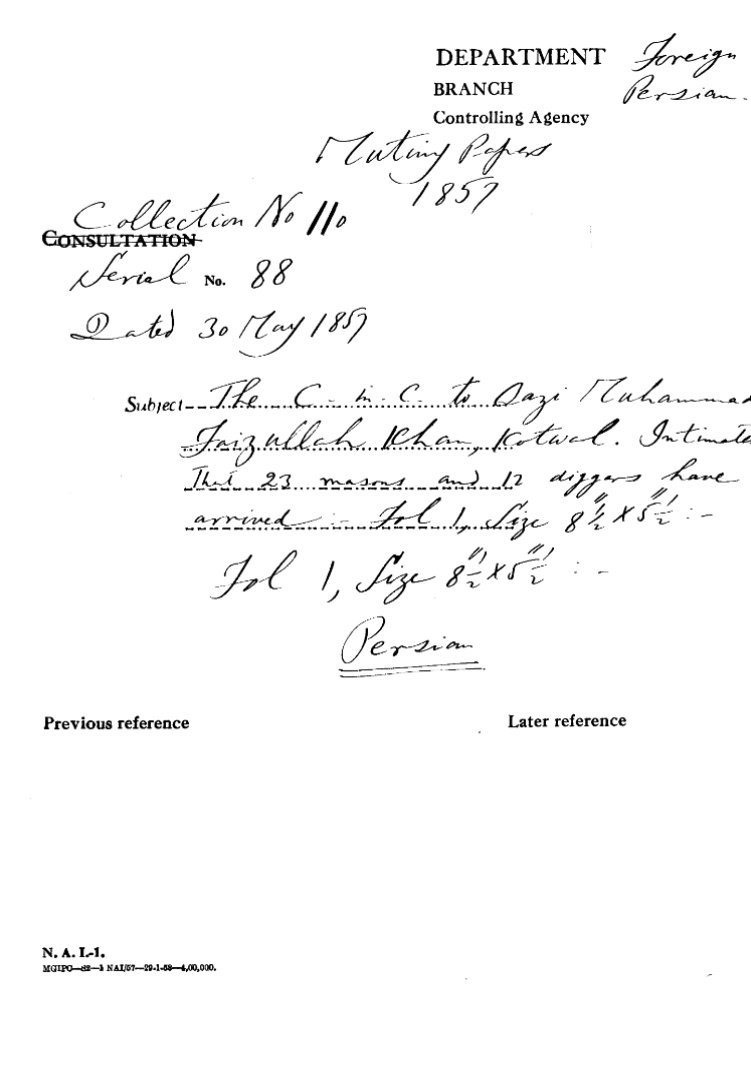 DEPARTMENT Foreign
BRANCH Persian.
Controlling Agency
Mutiny Papers
1857
Collection No 110
CONSULTATION
Serial No. 88
Dated 30 May 1857
Subject The C-in-C to Qazi Muhammad
Faizullah Khan, Kotwal. Intimate
That 23 masons and 12 diggers have
arrived :- Fol 1, Size 8½" X 5½" :-
Fol 1, Size 8½" X 5½" :-
Persian
Previous reference Later reference
N. A. I.-1.
MGIPC—S2—1 NAI/57—29-1-58—4,00,000.